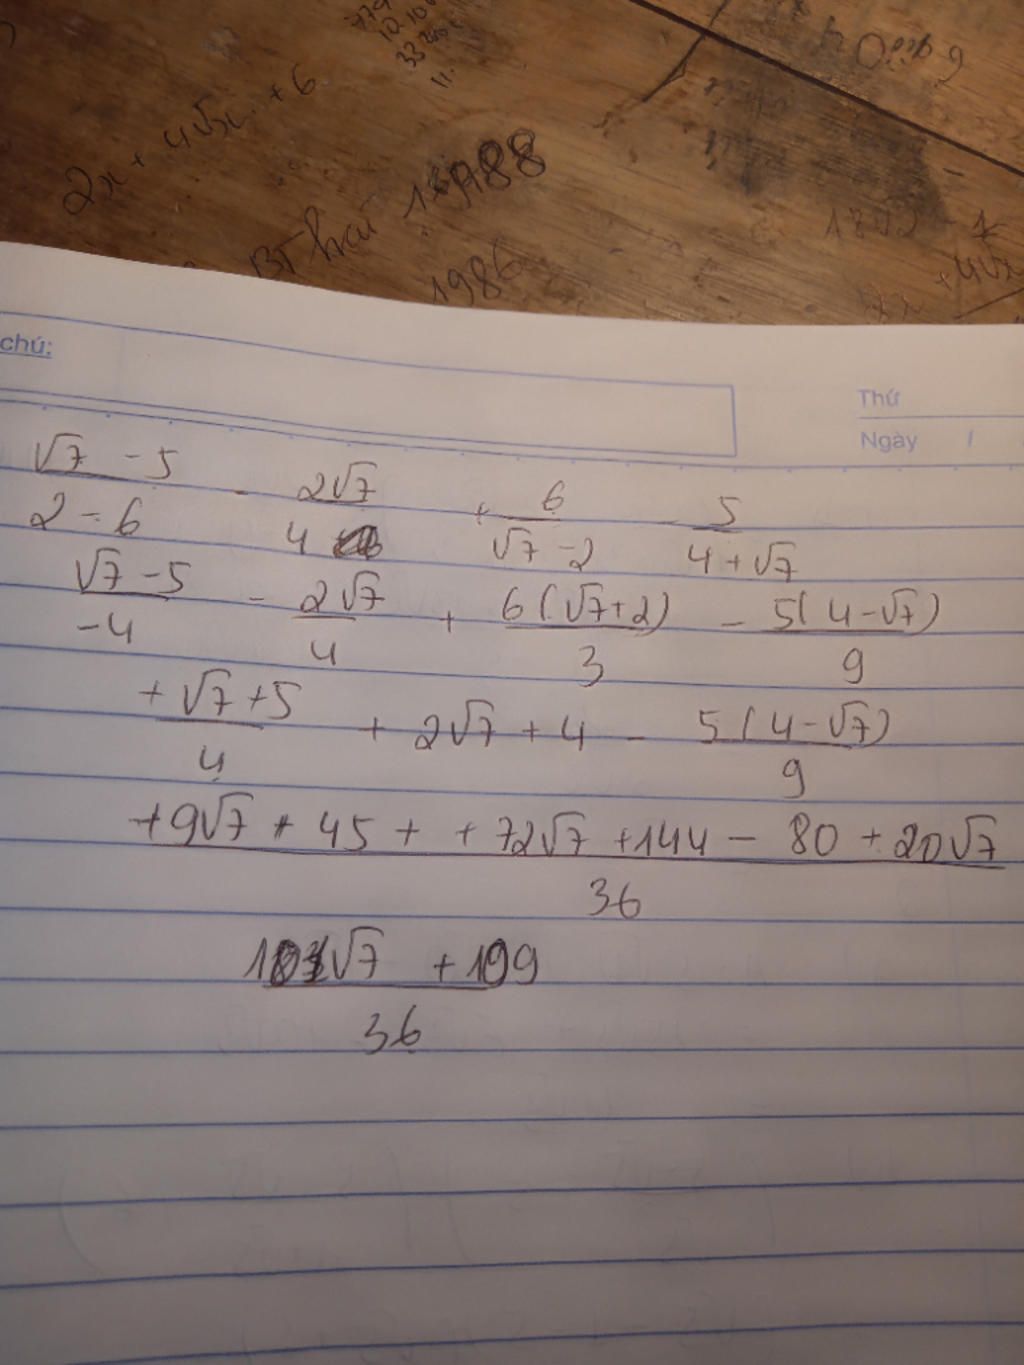 779
12.10
33
11.
6 giờ 04
2x + 4√x + 6
BT hai 1988
1986
18√2
+4√x
chú:
Thứ
Ngày /
√7 - 5 / 2 - 6 - 2√7 / 4 + 6 / √7 - 2 - 5 / 4 + √7
√7 - 5 / -4 - 2√7 / 4 + 6(√7+2) / 3 - 5(4-√7) / 9
+√7 + 5 / 4 + 2√7 + 4 - 5(4-√7) / 9
+9√7 + 45 + +72√7 + 144 - 80 + 20√7 / 36
101√7 + 109 / 36